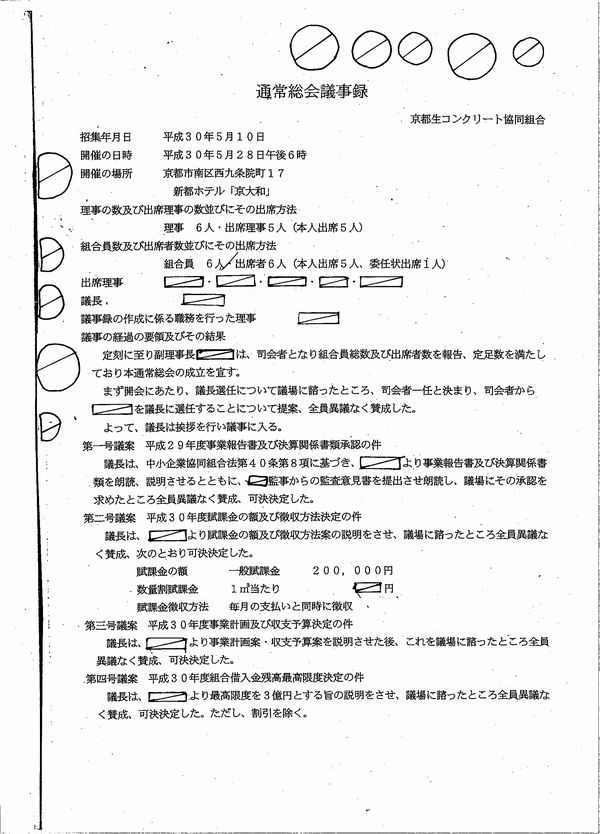 通常総会議事録
京都生コンクリート協同組合
招集年月日　平成３０年５月１０日
開催の日時　平成３０年５月２８日午後６時
開催の場所　京都市南区西九条院町１７
新都ホテル「京大和」
理事の数及び出席理事の数並びにその出席方法
理事　６人・出席理事５人（本人出席５人）
組合員数及び出席者数並びにその出席方法
組合員　６人・出席者６人（本人出席５人、委任状出席１人）
出席理事　・・・・
議長
議事録の作成に係る職務を行った理事
議事の経過の要領及びその結果
定刻に至り副理事長は、司会者となり組合員総数及び出席者数を報告、定足数を満たし
ており本通常総会の成立を宣す。
まず開会にあたり、議長選任について議場に諮ったところ、司会者一任と決まり、司会者から
を議長に選任することについて提案、全員異議なく賛成した。
よって、議長は挨拶を行い議事に入る。
第一号議案　平成２９年度事業報告書及び決算関係書類承認の件
議長は、中小企業協同組合法第４０条第８項に基づき、より事業報告書及び決算関係書
類を朗読、説明させるとともに、監事からの監査意見書を提出させ朗読し、議場にその承認を
求めたところ全員異議なく賛成、可決決定した。
第二号議案　平成３０年度賦課金の額及び徴収方法決定の件
議長は、より賦課金の額及び徴収方法案の説明をさせ、議場に諮ったところ全員異議な
く賛成、次のとおり可決決定した。
賦課金の額　一般賦課金　２００，０００円
数量割賦課金　１㎥当たり　円
賦課金徴収方法　毎月の支払いと同時に徴収
第三号議案　平成３０年度事業計画及び収支予算決定の件
議長は、より事業計画案・収支予算案を説明させた後、これを議場に諮ったところ全員
異議なく賛成、可決決定した。
第四号議案　平成３０年度組合借入金残高最高限度決定の件
議長は、より最高限度を３億円とする旨の説明をさせ、議場に諮ったところ全員異議な
く賛成、可決決定した。ただし、割引を除く。